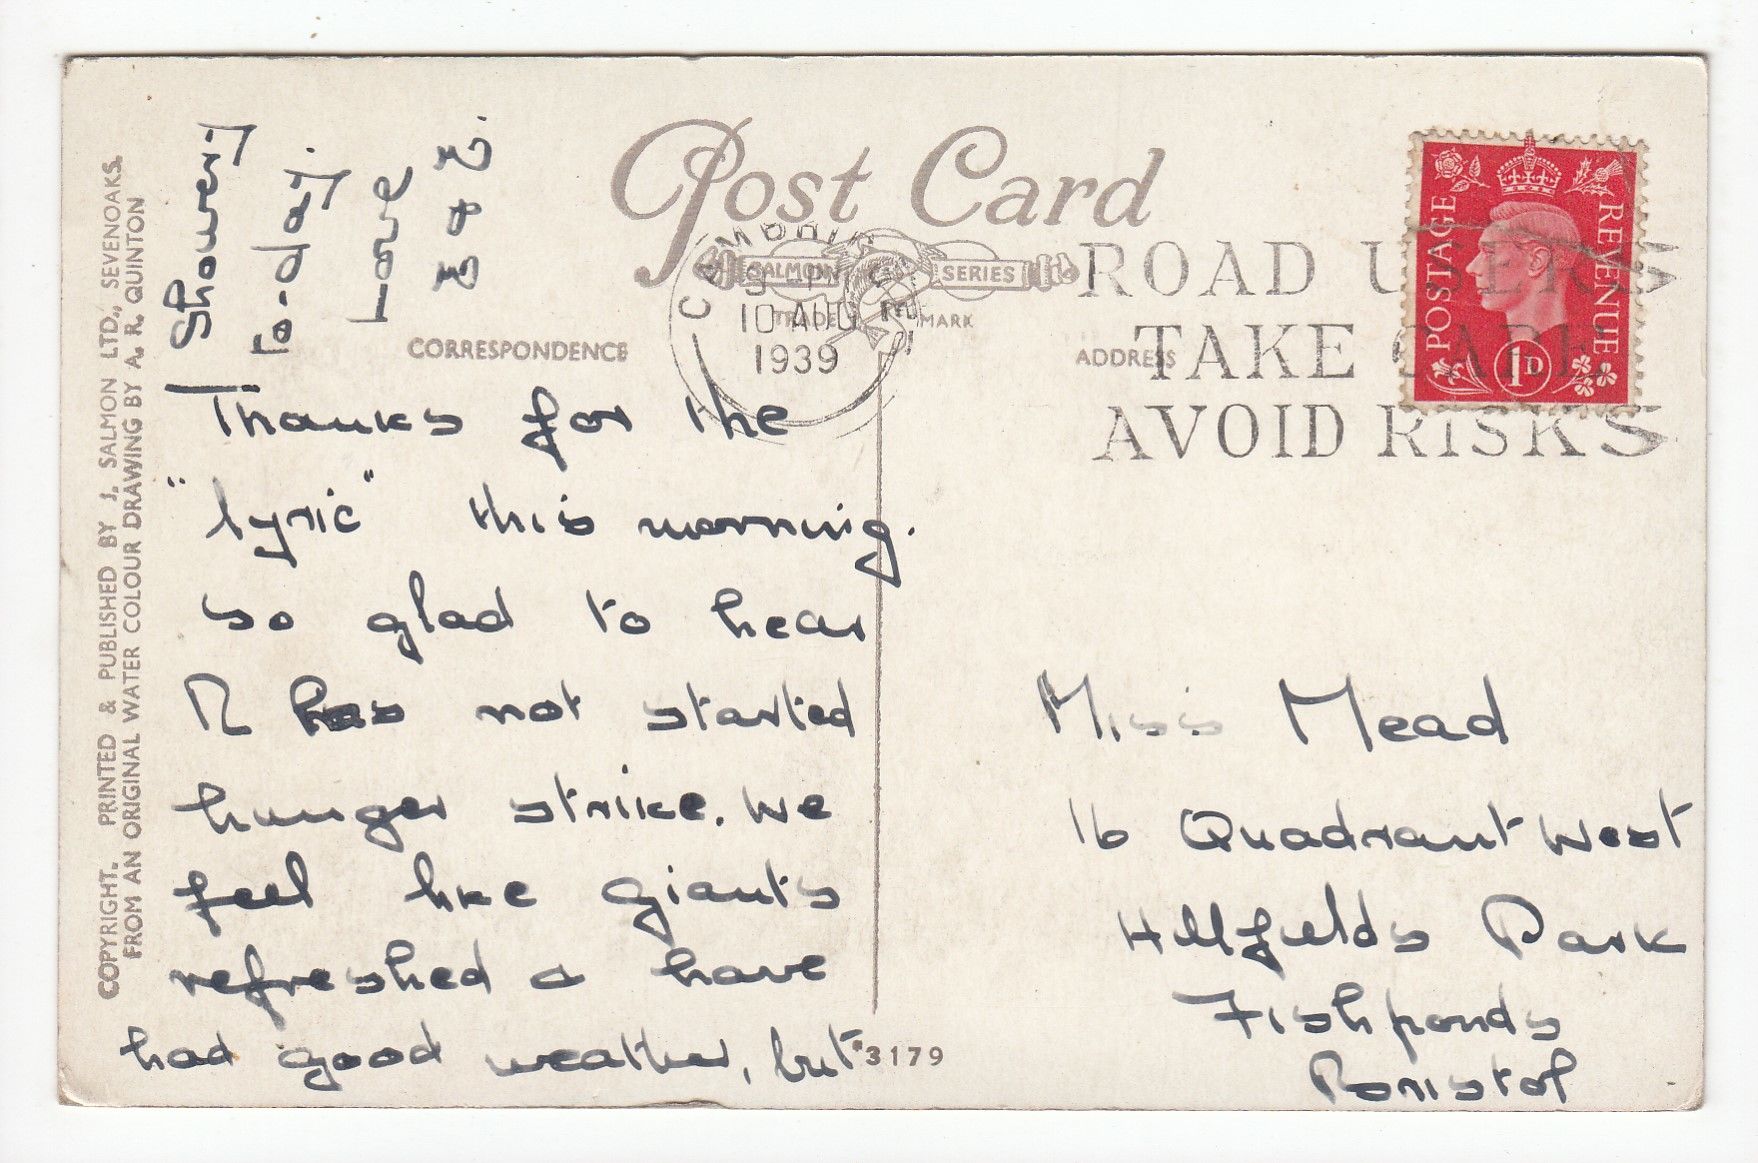 COPYRIGHT. PRINTED & PUBLISHED BY J. SALMON LTD., SEVENOAKS.
FROM AN ORIGINAL WATER COLOUR DRAWING BY A. R. QUINTON
Post Card
SALMON SERIES
TRADE MARK
CORRESPONDENCE
ADDRESS
10 AUG
1939
ROAD USERS
TAKE CARE
AVOID RISKS
POSTAGE
REVENUE
1D
Thanks for the
"lyric" this morning.
so glad to hear
R has not started
hunger strike. We
feel like giants
refreshed & have
had good weather, but
showery
to-day.
Love
E & E.
Miss Mead
16 Quadrant West
Hillfields Park
Fishponds
Bristol
*3179